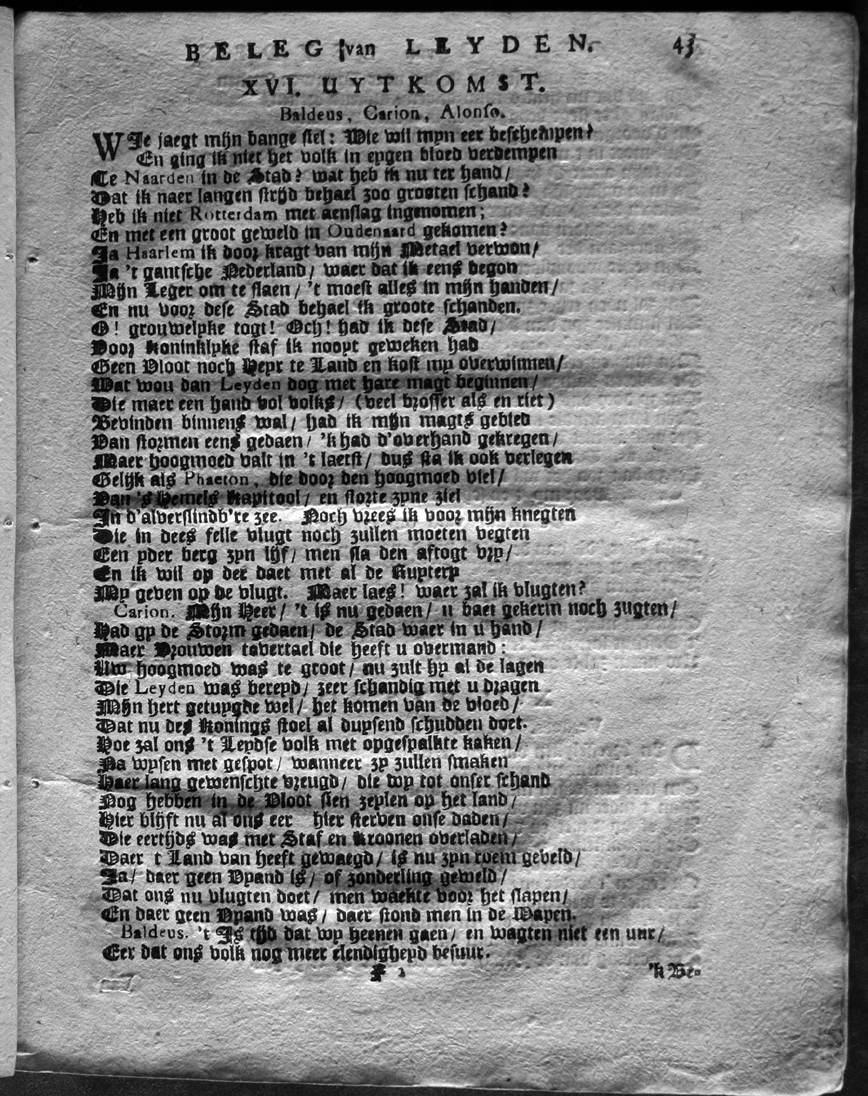 BELEG van LEYDEN. 43
XVI. UYTKOMST.
Baldeus, Carion, Alonso.
WIe jaegt mijn bange siel: Wie wil myn eer beschempen?
En ging ik niet het volk in eygen bloed verdempen
Te Naarden in de Stad? wat heb ik nu ter hand/
Dat ik naer langen strijd behael zoo grooten schand?
Heb ik niet Rotterdam met aenslag ingenomen;
En met een groot geweld in Oudenaard gekomen?
Ja Haarlem ik door kragt van mijn Metael verwon/
Ja 't gantsche Nederland/ waer dat ik eens begon
Mijn Leger om te slaen/ 't moest alles in mijn handen/
En nu voor dese Stad behael ik groote schanden.
O! grouwelyke togt! Och! had ik dese Stad/
Voor Koninklyke staf ik nooyt geweken had
Geen Vloot noch Heyr te Land en kost my overwinnen/
Wat wou dan Leyden dog met hare magt beginnen/
Die maer een hand vol volks/ (veel brosser als en riet)
Bevinden binnens wal/ had ik mijn magts gebied
Van stormen eens gedaen/ 'k had d'overhand gekregen/
Maer hoogmoed valt in 't laetst/ dus sta ik ook verlegen
Gelijk als Phaeton, die door den hoogmoed viel/
Van 's Hemels Kapitool/ en stortte zyne ziel
In d'alverslindb're zee. Noch vrees ik voor mijn knegten
Die in dees felle vlugt noch zullen moeten vegten
Een yder berg zyn lijf/ men sla den aftogt vry/
En ik wil op der daet met al de Ruytery
My geven op de vlugt. Maer laes! waer zal ik vlugten?
Carion. Mijn Heer/ 't is nu gedaen/ u baet gekerm noch zugten/
Had gy de Storm gedaen/ de Stad waer in u hand/
Maer Vrouwen tovertael die heeft u overmand:
Uw hoogmoed was te groot/ nu zult hy al de lagen
Die Leyden was bereyd/ zeer schandig met u dragen
Mijn hert getuygde wel/ het komen van de vloed/
Dat nu des Konings stoel al duysend schudden doet.
Hoe zal ons 't Leydse volk met opgespalkte kaken/
Na wysen met gespot/ wanneer zy zullen smaken
Haer lang gewenschte vreugd/ die wy tot onser schand
Nog hebben in de Vloot sien zeylen op het land/
Hier blijft nu al ons eer hier sterven onse daden/
Die eertijds was met Staf en Kroonen overladen/
Daer t Land van heeft gewaegd/ is nu zyn roem geveld/
Ja/ daer geen Vyand is/ of zonderling geweld/
Dat ons nu vlugten doet/ men waekte voor het slapen/
En daer geen Vyand was/ daer stond men in de Wapen.
Baldeus. 't Is tijd dat wy heenen gaen/ en wagten niet een uur/
Eer dat ons volk nog meer elendigheyd besuur.
F 2 'k Be-